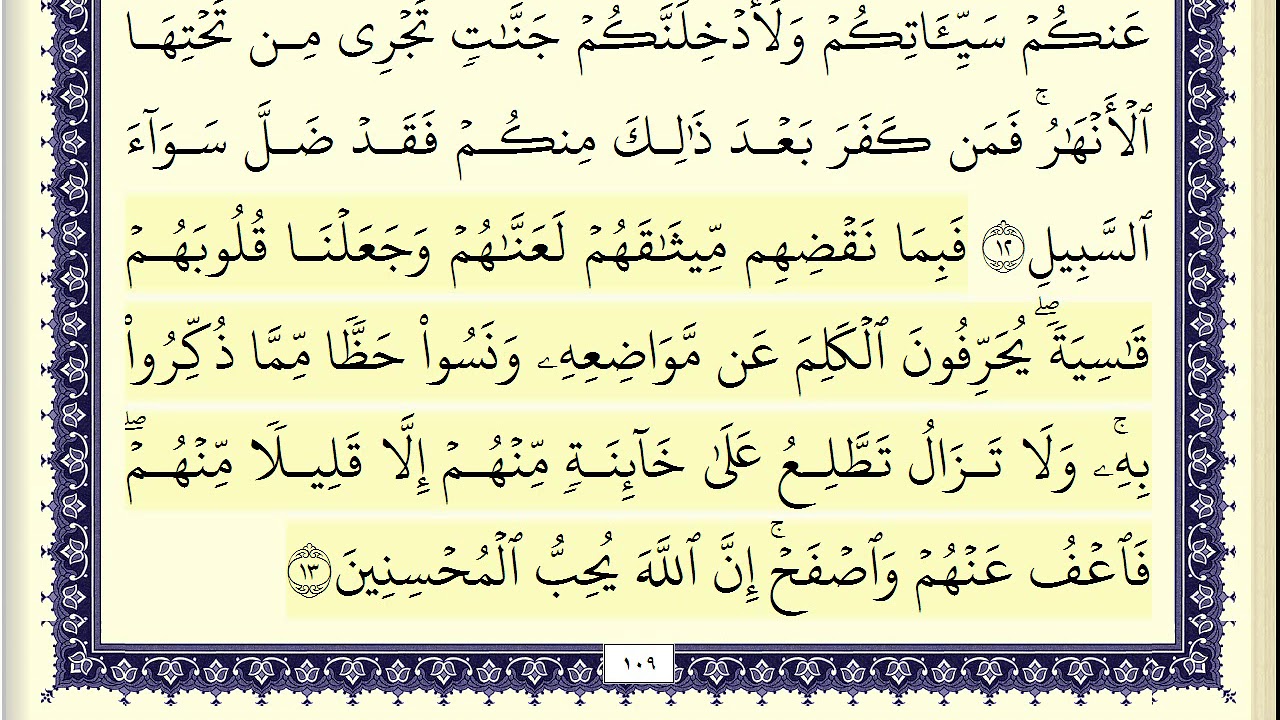 عَنكُمْ سَيِّـَٔاتِكُمْ وَلَأُدْخِلَنَّكُمْ جَنَّـٰتٍ تَجْرِى مِن تَحْتِهَا
ٱلْأَنْهَـٰرُ ۚ فَمَن كَفَرَ بَعْدَ ذَٰلِكَ مِنكُمْ فَقَدْ ضَلَّ سَوَآءَ
ٱلسَّبِيلِ ١٢ فَبِمَا نَقْضِهِم مِّيثَـٰقَهُمْ لَعَنَّـٰهُمْ وَجَعَلْنَا قُلُوبَهُمْ
قَـٰسِيَةً ۖ يُحَرِّفُونَ ٱلْكَلِمَ عَن مَّوَاضِعِهِۦ وَنَسُوا۟ حَظًّا مِّمَّا ذُكِّرُوا۟
بِهِۦ ۚ وَلَا تَزَالُ تَطَّلِعُ عَلَىٰ خَآئِنَةٍ مِّنْهُمْ إِلَّا قَلِيلًا مِّنْهُمْ ۖ
فَٱعْفُ عَنْهُمْ وَٱصْفَحْ ۚ إِنَّ ٱللَّهَ يُحِبُّ ٱلْمُحْسِنِينَ ١٣
١٠٩